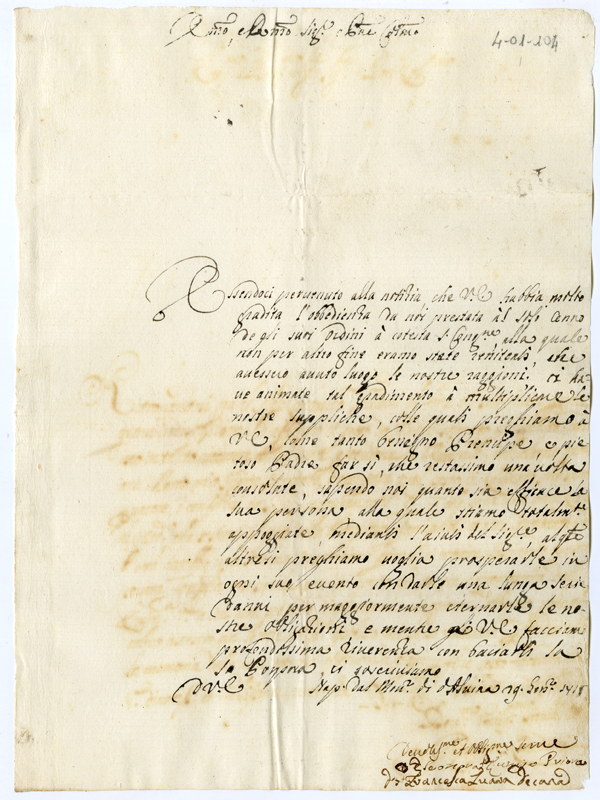 Emo, e Rmo Sigr. e Pne Colmo
4-01-104
Essendoci pervenuto alla notitia, che V.E. habbia molto
gradita l'obbedienza da noi prestata al solo cenno
de gli suoi ordini à cotesta S. Congne, alla quale
non per altro fine eramo state renitenti, che
avessero avuto luogo le nostre raggioni. ci ha-
ve animate tal gradimento à multiplicare le
nostre suppliche, colle quali preghiamo à
V.E., come tanto benegno Prencipe e pie
toso Padre far sì, che restassimo una volta
consolate, sapendo noi quanto sia efficace la
sua persona alla quale stiamo totalmte
appoggiate, mediante l'aiuti del Sigre, al qle
altresì preghiamo voglia prosperarle in
ogni suo evento con darle una lunga serie
d'anni per maggiormente eternarsi le no-
stre obligationi e mentre à V.E. facciamo
profondissima riverenza con baciarli la
Sa Porpora, ci soscriviamo
D.V.E. Nap. dal Monro di d'Alvina 19.
Devotisme et Obligme serve
Priora
Francesca Decana